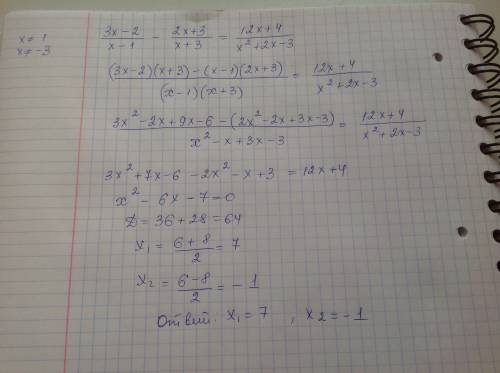 x ≠ 1
x ≠ -3
(3x-2)/(x-1) - (2x+3)/(x+3) = (12x+4)/(x²+2x-3)
((3x-2)(x+3) - (x-1)(2x+3))/((x-1)(x+3)) = (12x+4)/(x²+2x-3)
(3x²-2x+9x-6-(2x²-2x+3x-3))/(x²-x+3x-3) = (12x+4)/(x²+2x-3)
3x²+7x-6-2x²-x+3 = 12x+4
x²-6x-7=0
D = 36+28 = 64
x₁ = (6+8)/2 = 7
x₂ = (6-8)/2 = -1
Ответ: x₁ = 7, x₂ = -1